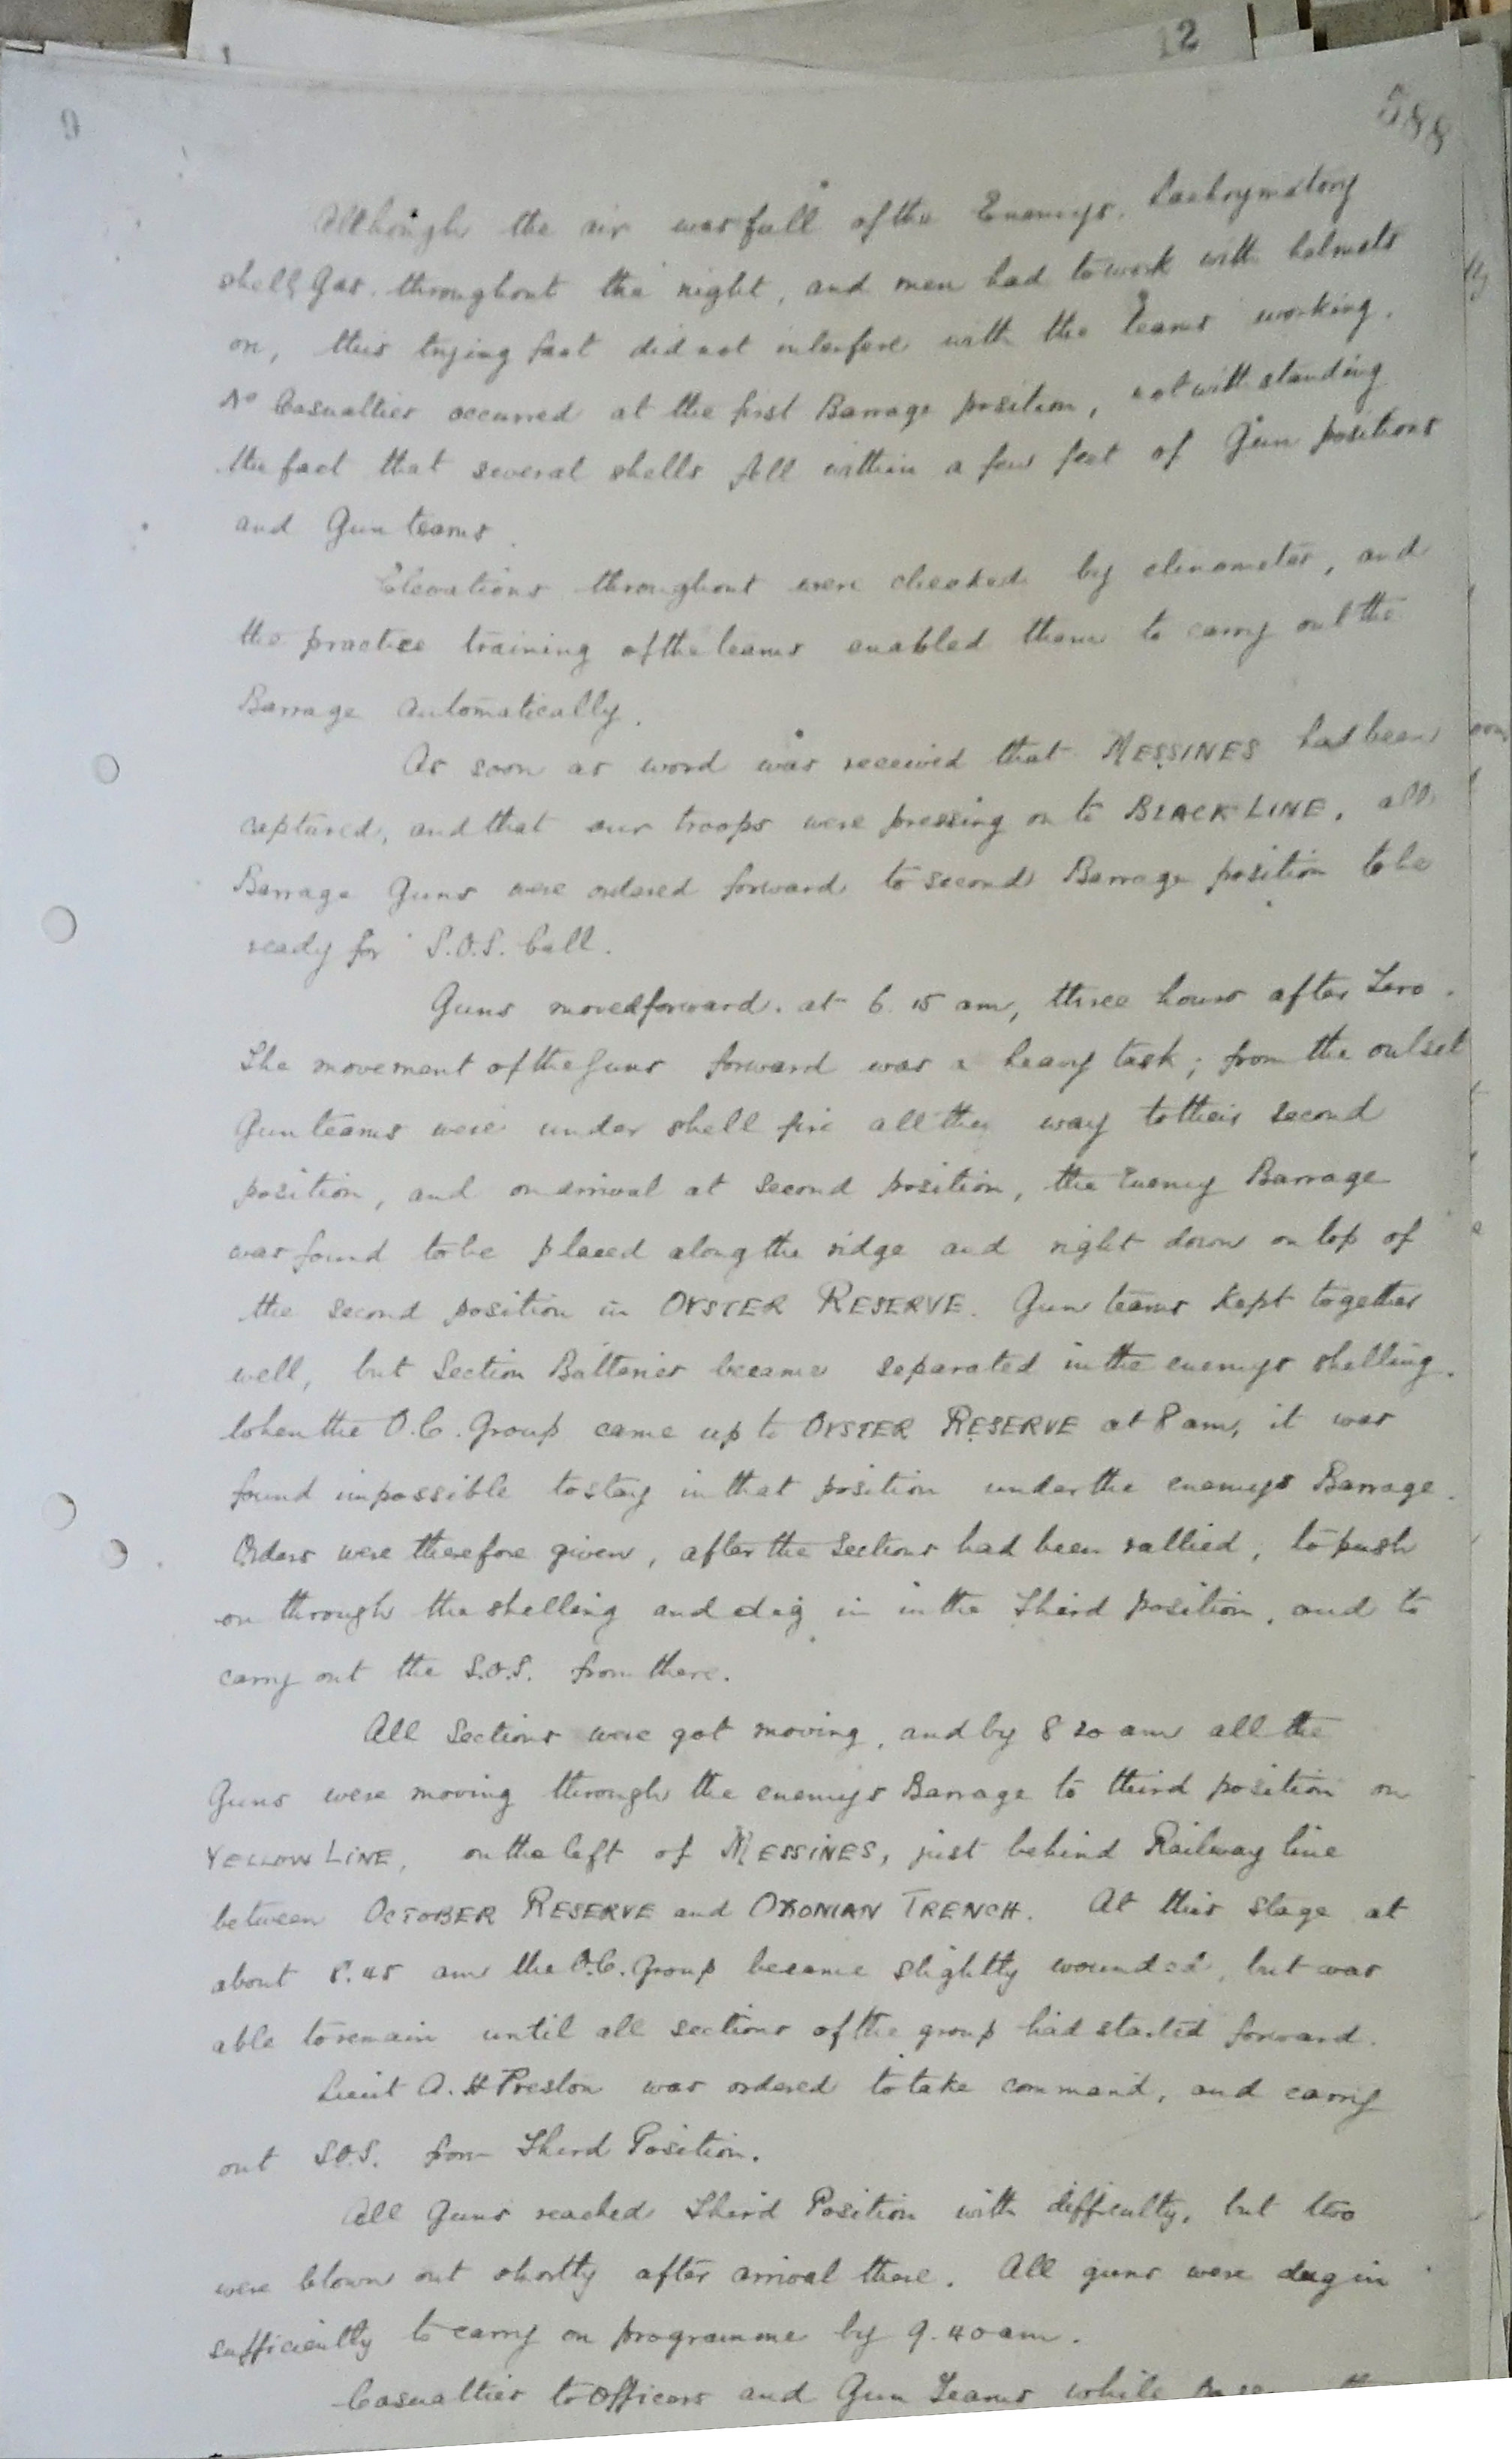 12
9
588
Although the air was full of the Enemys. Lachrymatory
shell Gas. throughout the night, and men had to work with helmets
on, this trying fact did not interfere with the teams working.
No Casualties occurred at the first Barrage position, notwithstanding
the fact that several shells fell within a few feet of Gun positions
and Gun teams.
Elevations throughout were checked by clinometer, and
the practice training of the teams enabled them to carry out the
Barrage automatically.
As soon as word was received that MESSINES had been
captured, and that our troops were pressing on to BLACK LINE, all
Barrage Guns were ordered forward to second Barrage position to be
ready for S.O.S. Call.
Guns moved forward. at 6.15 am, three hours after Zero.
The movement of the Guns forward was a heavy task; from the outset
Gun teams were under shell fire all the way to their second
position, and on arrival at second position, the Enemy Barrage
was found to be placed along the ridge and right down on top of
the second position in OYSTER RESERVE. Gun teams kept together
well, but Section Batteries became separated in the enemys shelling.
When the O.C. Group came up to OYSTER RESERVE at 8 am, it was
found impossible to stay in that position under the enemys Barrage.
Orders were therefore given, after the Sections had been rallied, to push
on through the shelling and dig in in the Third position, and to
carry out the S.O.S. from there.
All Sections were got moving, and by 8 20 am all the
Guns were moving through the enemys Barrage to third position on
YELLOW LINE, on the left of MESSINES, just behind Railway line
between OCTOBER RESERVE and OXONIAN TRENCH. At this stage at
about 8.45 am the O.C. Group became slightly wounded, but was
able to remain until all sections of the group had started forward.
Lieut A. H Preston was ordered to take command, and carry
out S.O.S. from Third Position.
All Guns reached Third Position with difficulty, but two
were blown out shortly after arrival there. All guns were dug in
sufficiently to carry on programme by 9.40 am.
Casualties to Officers and Gun Teams while